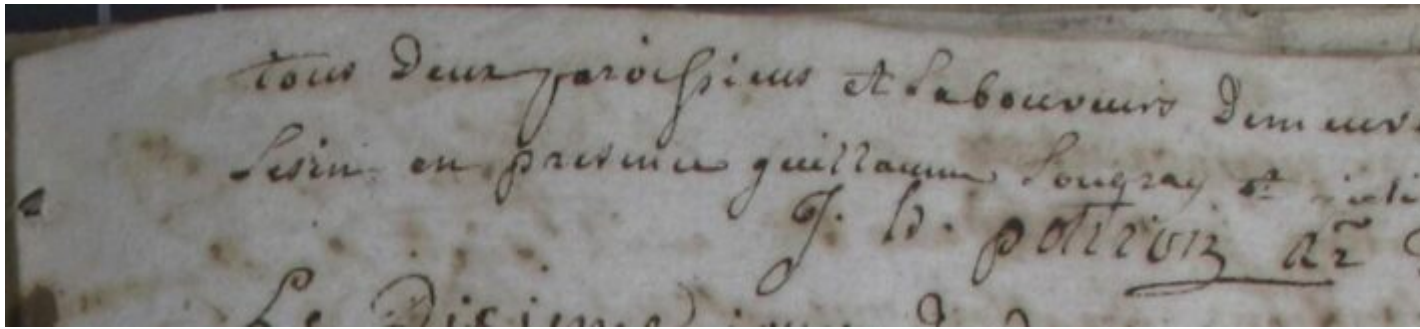 tous deux paroissiens et Laboureurs demeur
Lesin en presence guillaume Lougray et
J. h. poirion
Le Dixieme jour de